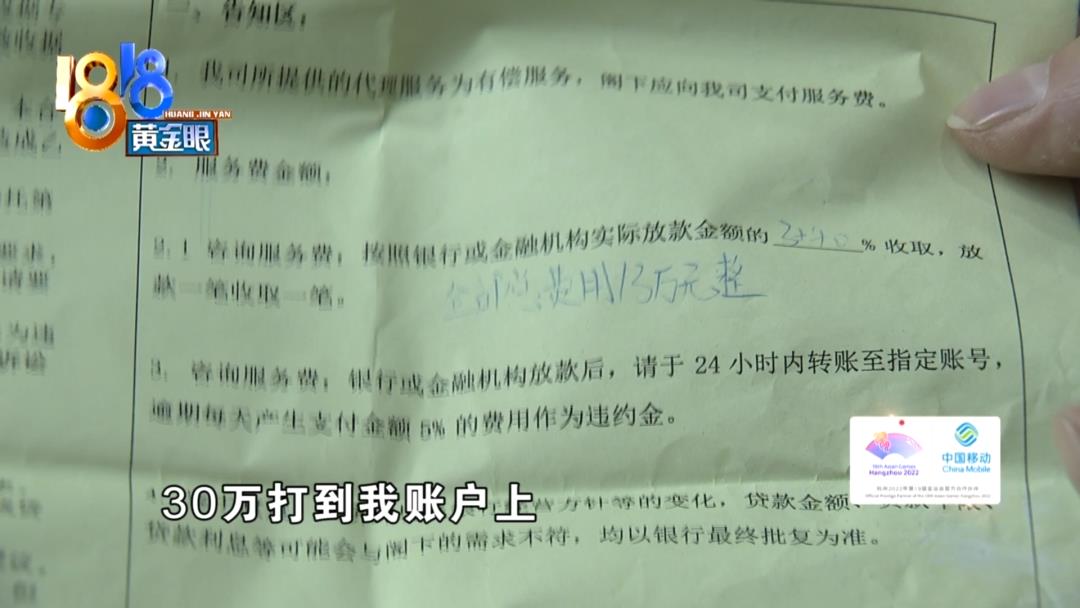 二、告知区：
1818
HUANG JIN YAN
黄金眼
我司所提供的代理服务为有偿服务，阁下应向我司支付服务费。
2、服务费金额：
2.1 咨询服务费：按照银行或金融机构实际放款金额的 % 收取，放
款一笔收取一笔。
费用13万元整
3、咨询服务费：银行或金融机构放款后，请于 24 小时内转账至指定账号，
逾期每天产生支付金额 5% 的费用作为违约金。
19th Asian Games
Hangzhou 2022
中国移动
China Mobile
杭州2022年第19届亚运会官方合作伙伴
Official Prestige Partner of the 19th Asian Games Hangzhou 2022
30万打到我账户上
方针等的变化，贷款金额、
贷款利息等可能会与阁下的需求不符，均以银行最终批复为准。